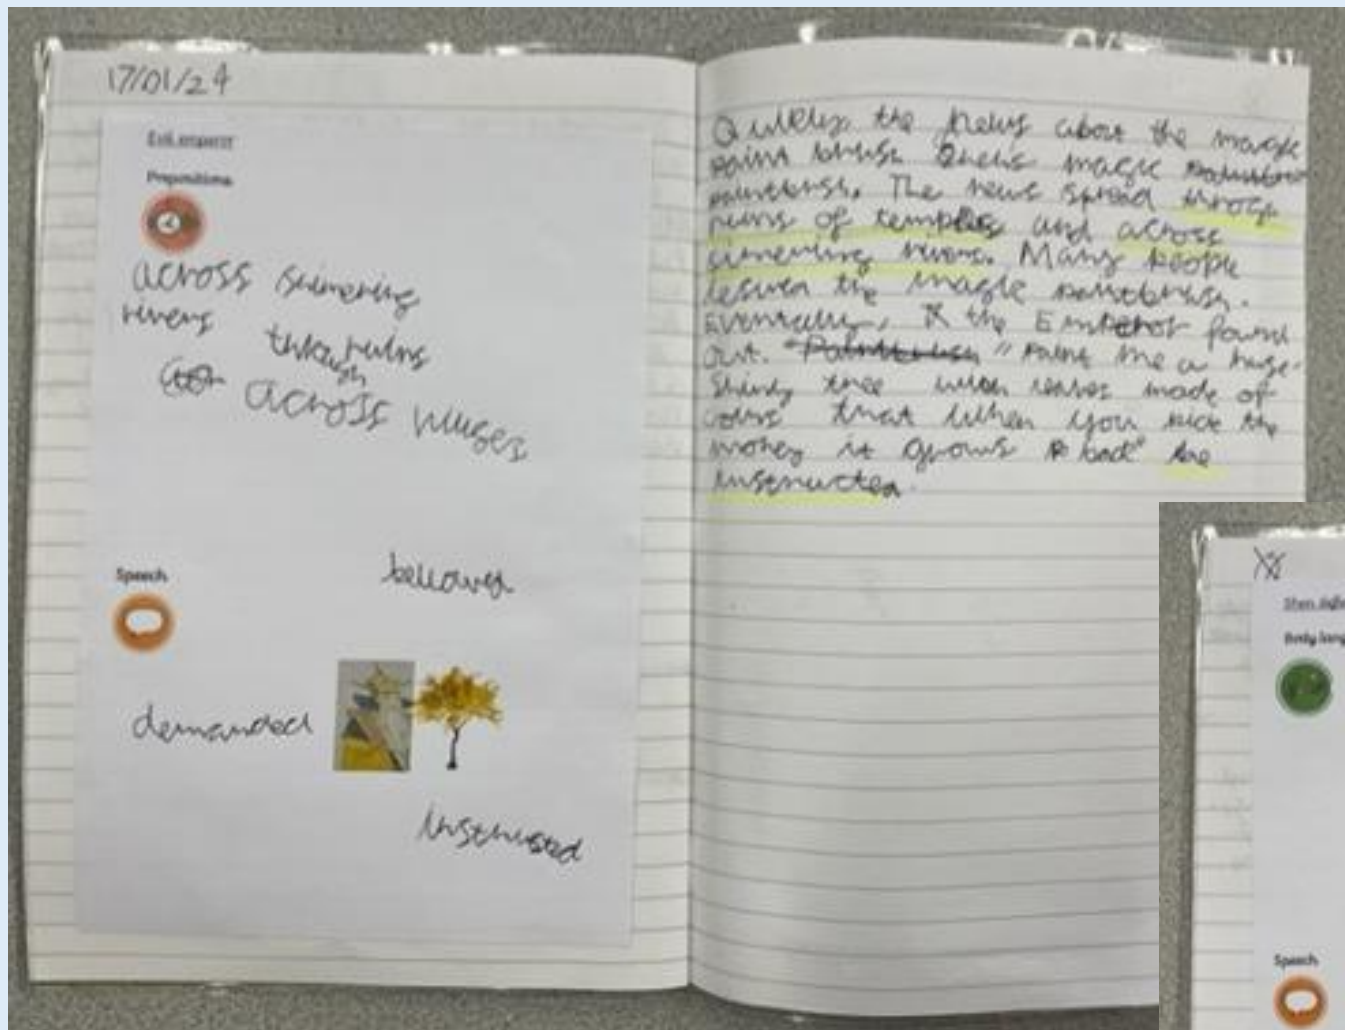 17/01/24
Evil emperor
Prepositions
across shimering
rivers through ruins
across viliges
Speech
bellowed
demanded
instructed
the news about the magic
paint brush magic
paintbrush. The news spread throgh
ruins of temples and across
rivers. Many people
the magic paintbrush.
Eventually, the Emperor found
out. "Paint me a huge
shiny tree with leaves made of
coins that when you pick the
money it grows back" he
instructed.
Speech